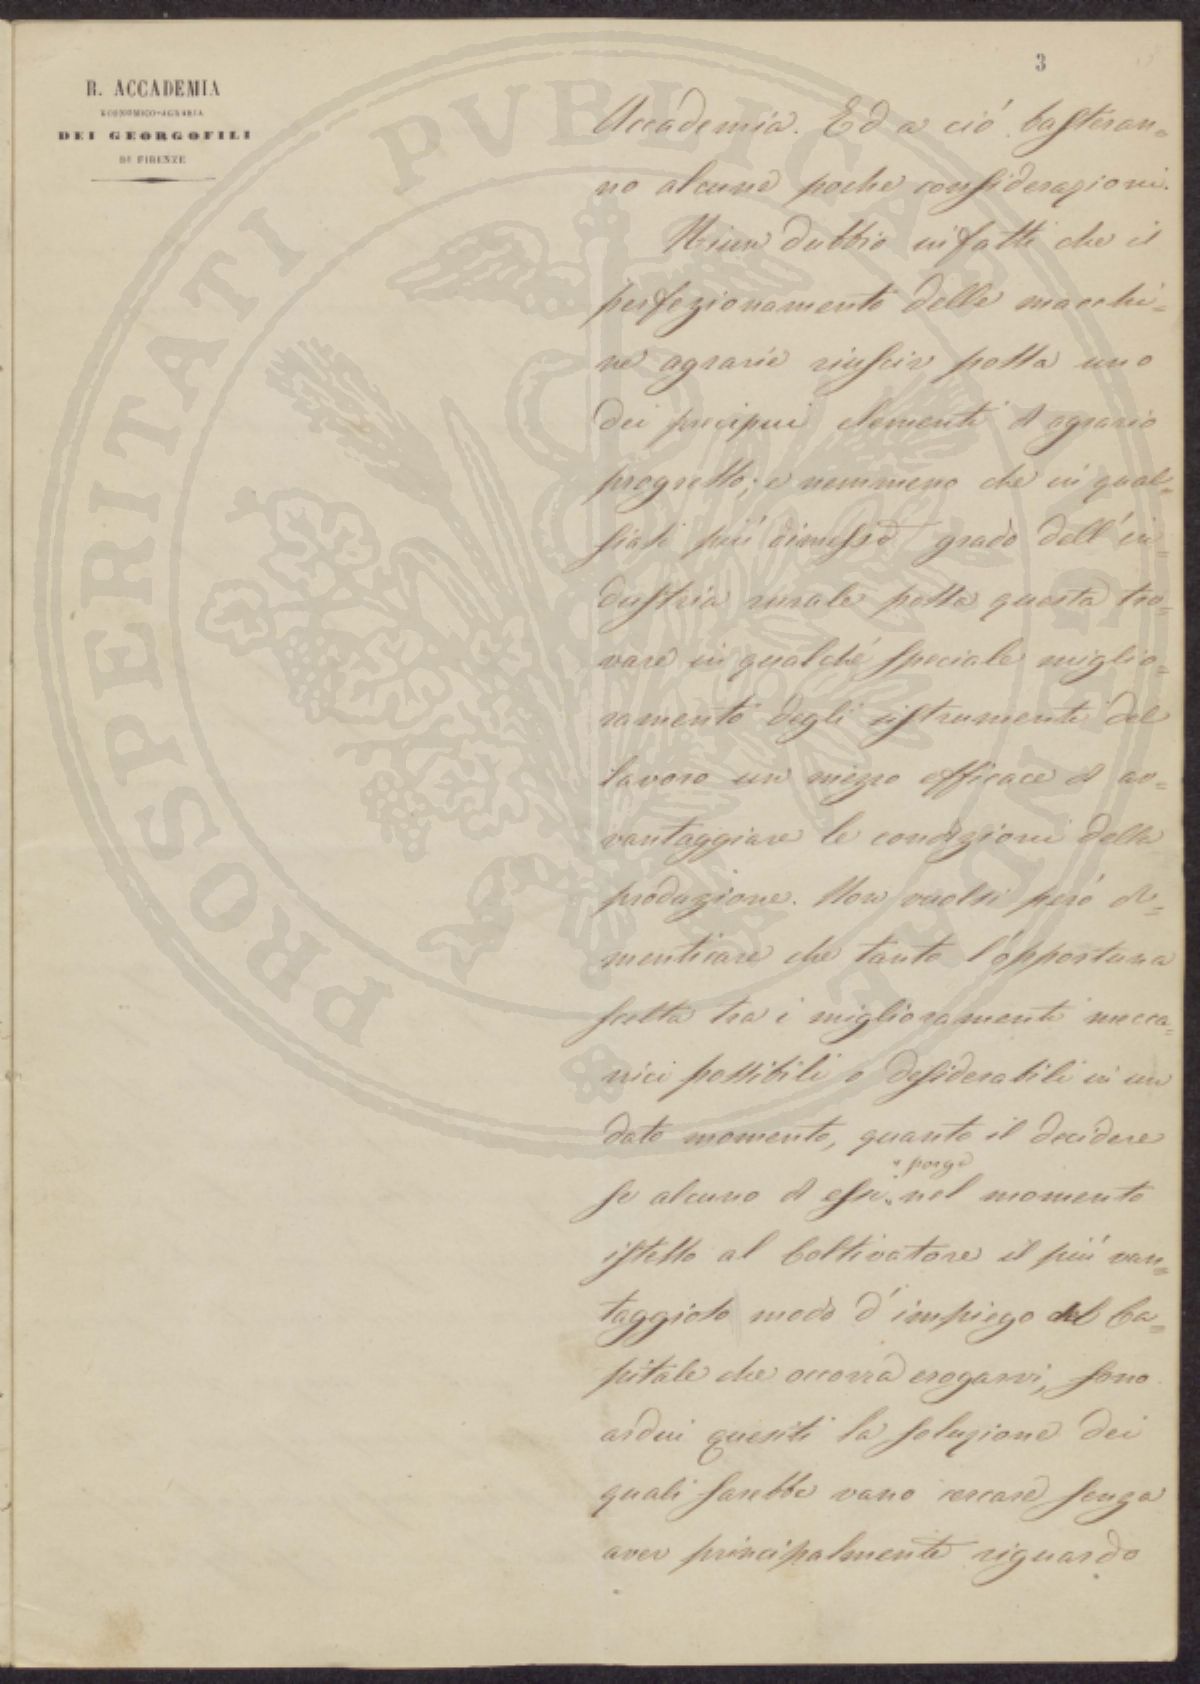 3
R. ACCADEMIA
ECONOMICO-AGRARIA
DEI GEORGOFILI
DI FIRENZE
Accademia. Ed a ciò basteran=
no alcune poche considerazioni.
Niun dubbio infatti che il
perfezionamento delle macchi=
ne agrarie riuscir possa uno
dei precipui elementi d'agrario
progresso; e nemmeno che in qual=
siasi più dimesso grado dell'in=
dustria rurale possa questa tro=
vare in qualche speciale miglio=
ramento degli istrumenti del
lavoro un mezzo efficace di av=
vantaggiare le condizioni della
produzione. Non vuolsi però di=
menticare che tanto l'opportuna
scelta tra i miglioramenti mecca=
nici possibili o desiderabili in un
dato momento, quanto il decidere
se alcuno di essi "porga" nel momento
istesso al Coltivatore il più van=
taggioso modo d'impiego del Ca=
pitale che occorra erogarvi, sono
ardui quesiti la soluzione dei
quali sarebbe vano cercare senza
aver principalmente riguardo
PROSPERITATI PVBLICAE AVGENDAE